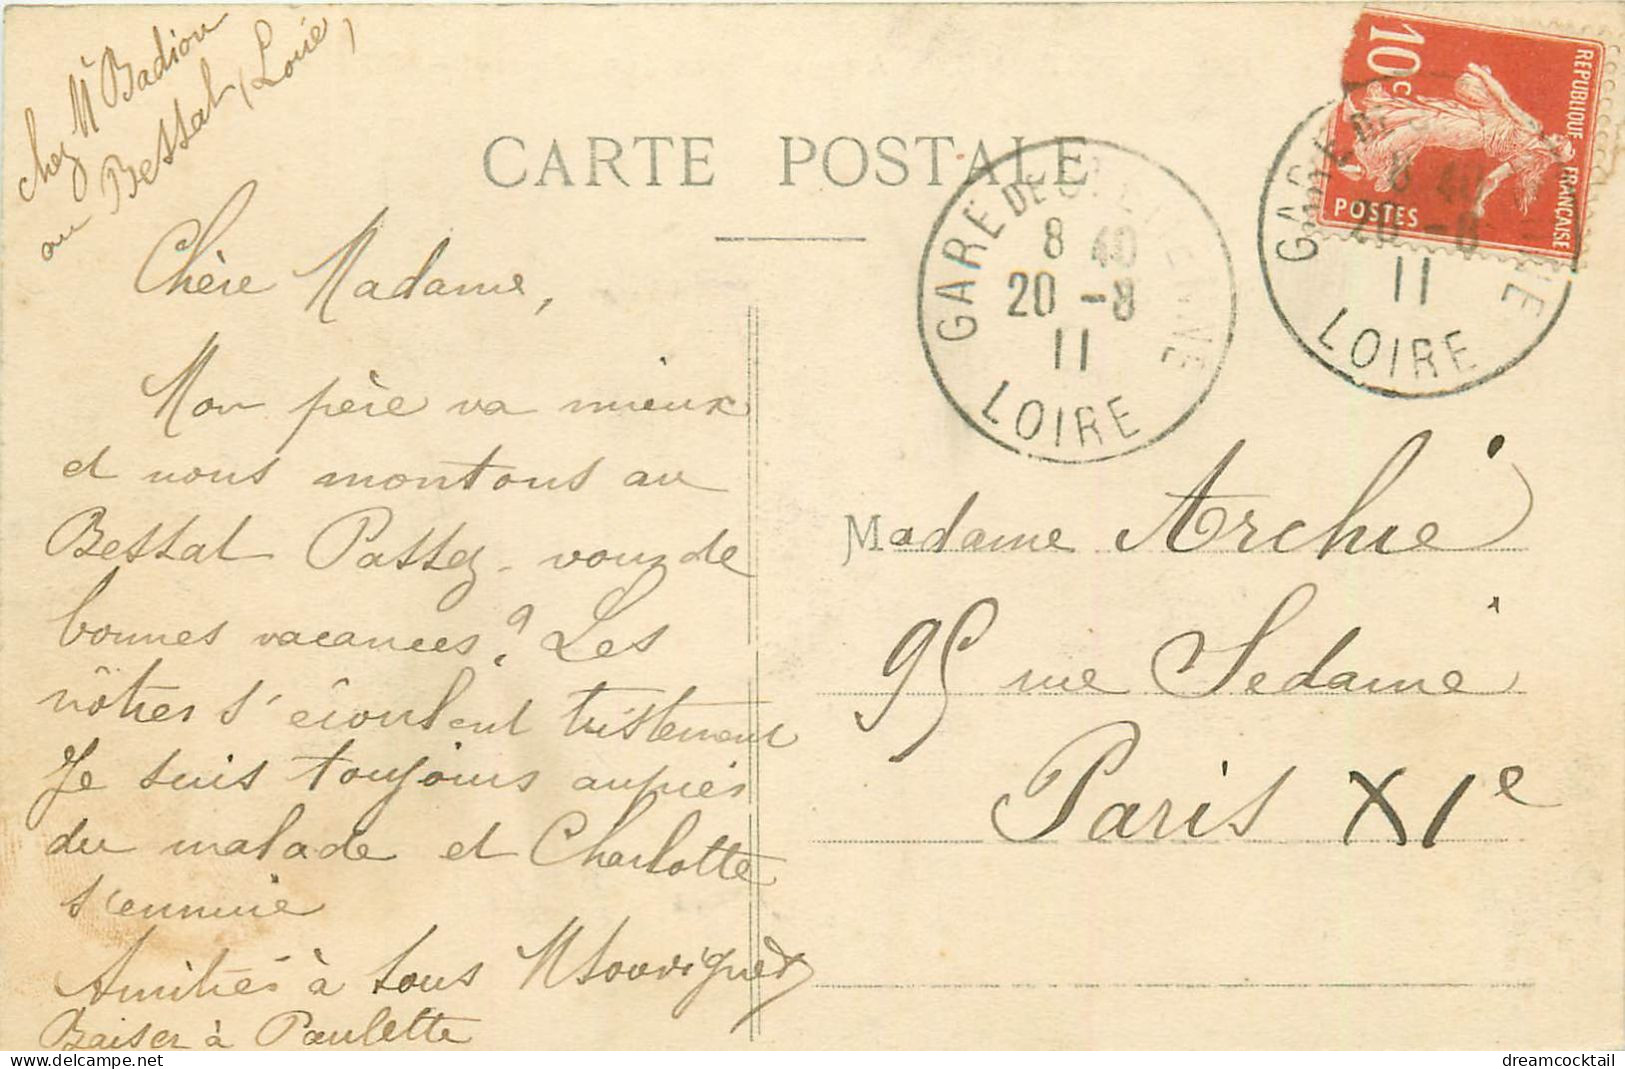 chez Mr Badiou
au Bessat (Loire)
CARTE POSTALE
10c
REPUBLIQUE FRANÇAISE
POSTES
GARE DE ST ETIENNE
8 40
20 - 8
11
LOIRE
GARE DE ST ETIENNE
8 40
20 - 8
11
LOIRE
Chère Madame,
Mon père va mieux
et nous montons au
Bessat Passez-vous de
bonnes vacances? Les
nôtres s'écoulent tristement
Je suis toujours auprès
du malade et Charlotte
s'ennuie
Amitiés à tous MSouvignet
Baiser à Paulette
Madame Archié
95 rue Sedaine
Paris XIe
dreamcocktail